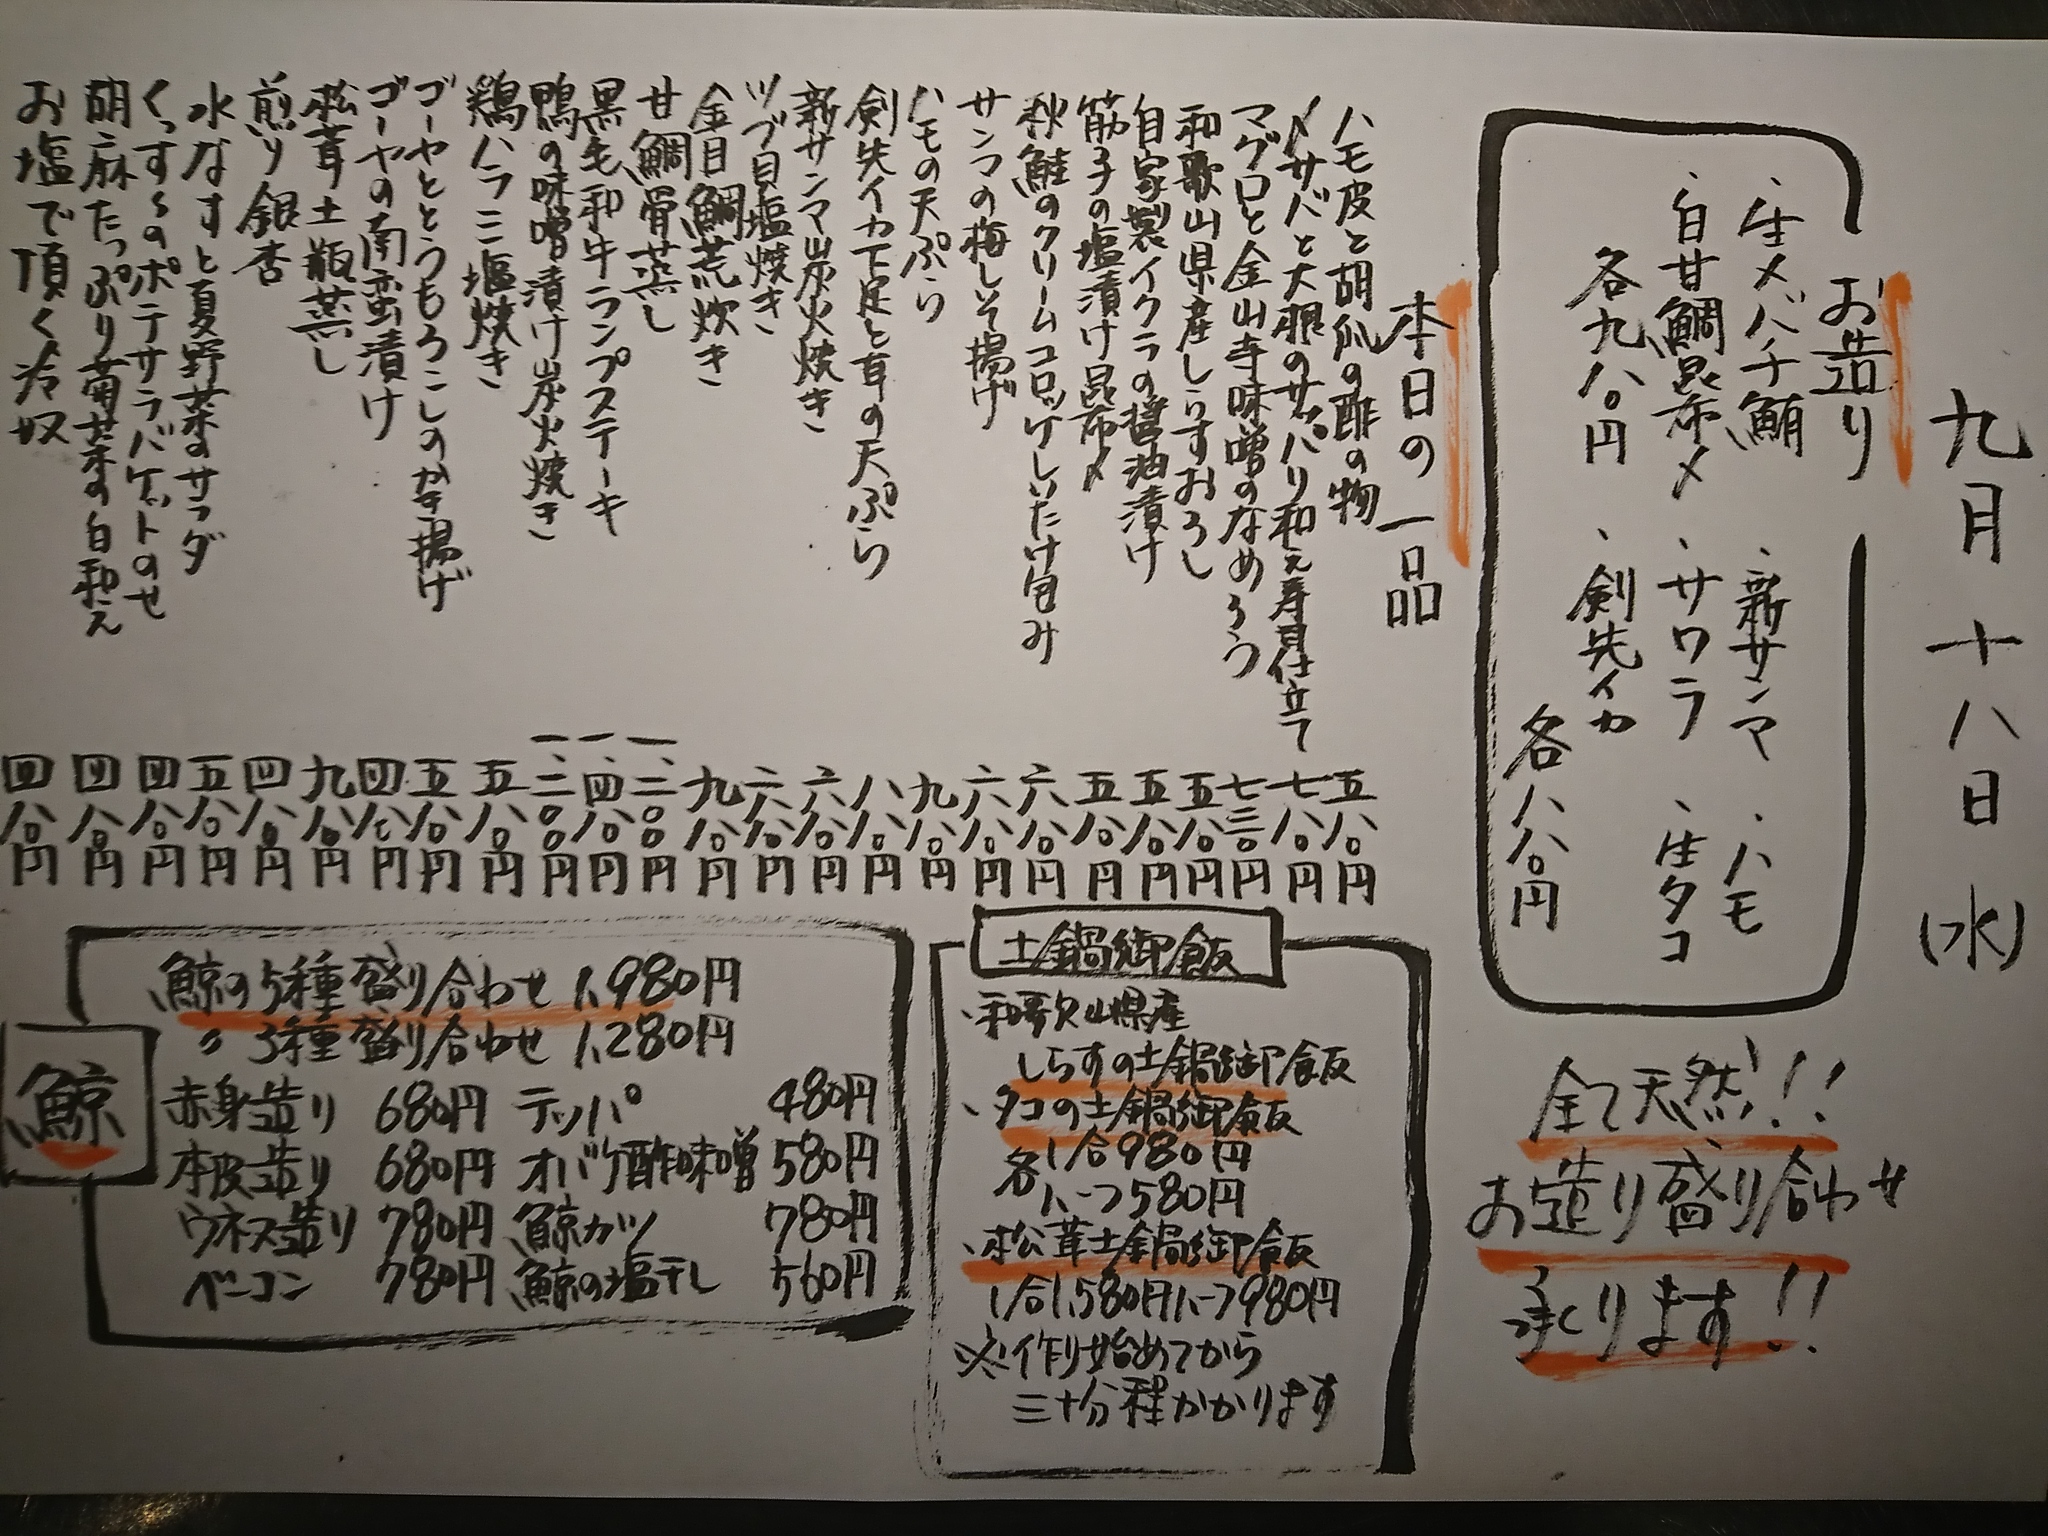 九月十八日(水)
お造り
、生メバチ鮪 、新サンマ 、ハモ
、白甘鯛昆布〆 、サワラ 、生タコ
各九八〇円 、剣先イカ
各八八〇円
本日の一品
ハモ皮と胡瓜の酢の物 五八〇円
〆サバと大根のサッパリ和え寿司仕立て 七八〇円
マグロと金山寺味噌のなめろう 七三〇円
和歌山県産しらすおろし 五八〇円
自家製イクラの醤油漬け 五八〇円
筋子の塩漬け昆布〆 五八〇円
秋鮭のクリームコロッケしいたけ包み 六八〇円
サンマの梅しそ揚げ 六八〇円
ハモの天ぷら 九八〇円
剣先イカ下足と耳の天ぷら 八八〇円
新サンマ炭火焼き 六八〇円
ツブ貝塩焼き 六八〇円
金目鯛荒炊き 九八〇円
甘鯛骨蒸し 一、二〇〇円
黒毛和牛ランプステーキ 一、四八〇円
鴨の味噌漬け炭火焼き 一、二〇〇円
鶏ハラミ塩焼き 五八〇円
ゴーヤととうもろこしのかき揚げ 五八〇円
ゴーヤの南蛮漬け 四八〇円
松茸土瓶蒸し 九八〇円
煎り銀杏 四八〇円
水なすと夏野菜のサラダ 五八〇円
くっすぅのポテサラバゲットのせ 四八〇円
胡麻たっぷり菊菜の白和え 四八〇円
お塩で頂く冷奴 四八〇円
全て天然!!
お造り盛り合わせ
承ります!!
土鍋御飯
、和歌山県産
しらすの土鍋御飯
、タコの土鍋御飯
各 1合980円
ハーフ580円
、松茸土鍋御飯
1合1,580円ハーフ980円
※作り始めてから
三十分程かかります
鯨
鯨の5種盛り合わせ 1,980円
〃 3種盛り合わせ 1,280円
赤身造り 680円 テッパ 480円
本皮造り 680円 オバケ酢味噌 580円
ウネス造り 780円 鯨カツ 780円
ベーコン 780円 鯨の塩干し 560円